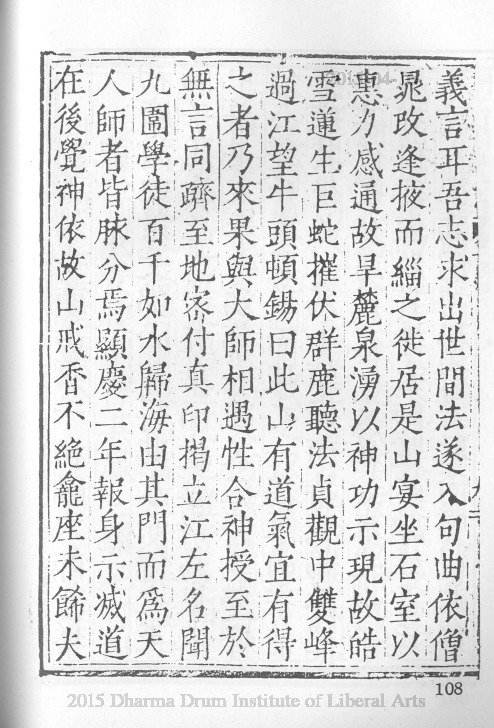 義言耳吾志求出世間法遂入句曲依僧
晁改逢掖而緇之徙居是山宴坐石室以
惠力感通故旱麓泉湧以神功示現故皓
雪蓮生巨蛇摧伏群鹿聽法貞觀中雙峰
過江望牛頭頓錫曰此山有道氣宜有得
之者乃來果與大師相遇性合神授至於
無言同躋至地密付真印揭立江左名聞
九圍學徒百千如水歸海由其門而為天
人師者皆脉分焉顯慶二年報身示滅道
在後覺神依故山戒香不絶龕座未飾夫
108
2015 Dharma Drum Institute of Liberal Arts